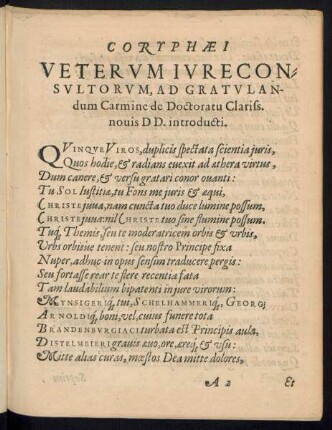 CORYPHÆI
VETERVM IVRECON-
SVLTORVM, AD GRATVLAN-
dum Carmine de Doctoratu Clariss.
nouis DD. introducti.
QVINQVE VIROS, duplicis spectata scientia juris,
Quos hodie, & radians euexit ad æthera virtus,
Dum canere, & versu gratari conor ouanti:
Tu SOL Iustitiæ, tu Fons me juris & æqui,
CHRISTE juua, nam cuncta tuo duce lumine possum,
CHRISTE juua: nil CHRISTE tuo sine flumine possum.
Tuq́, Themis, seu te moderatricem orbis & vrbis,
Vrbs orbisue tenent: seu nostro Principe fixa
Nuper, adhuc in opus sensim traducere pergis:
Seu fortasse rear te flere recentia fata
Tam laudabilium bipatenti in jure virorum:
MYNSIGERIq́, tui, SCHELHAMMERIq́, GEORGI
ARNOLDIq́, boni, vel, cuius funere tota
BRANDENBVRGIACI turbata est Principis aula,
DISTELMEIERI grauis æuo, ore, æreq́, & vsu:
Mitte alias curas, mœstos Dea mitte dolores,
A 2
Et